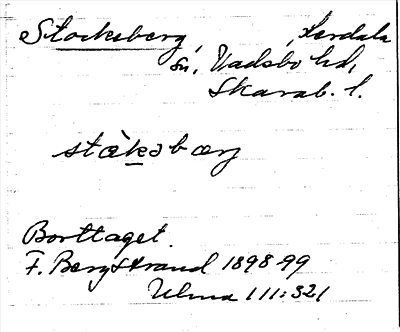 Stocksberg, Leksdala
sn, Vadsbo hd,
Skarab. l.
stàksbærj
Borttaget.
F. Bergstrand 1898-99
Ulma 111:321